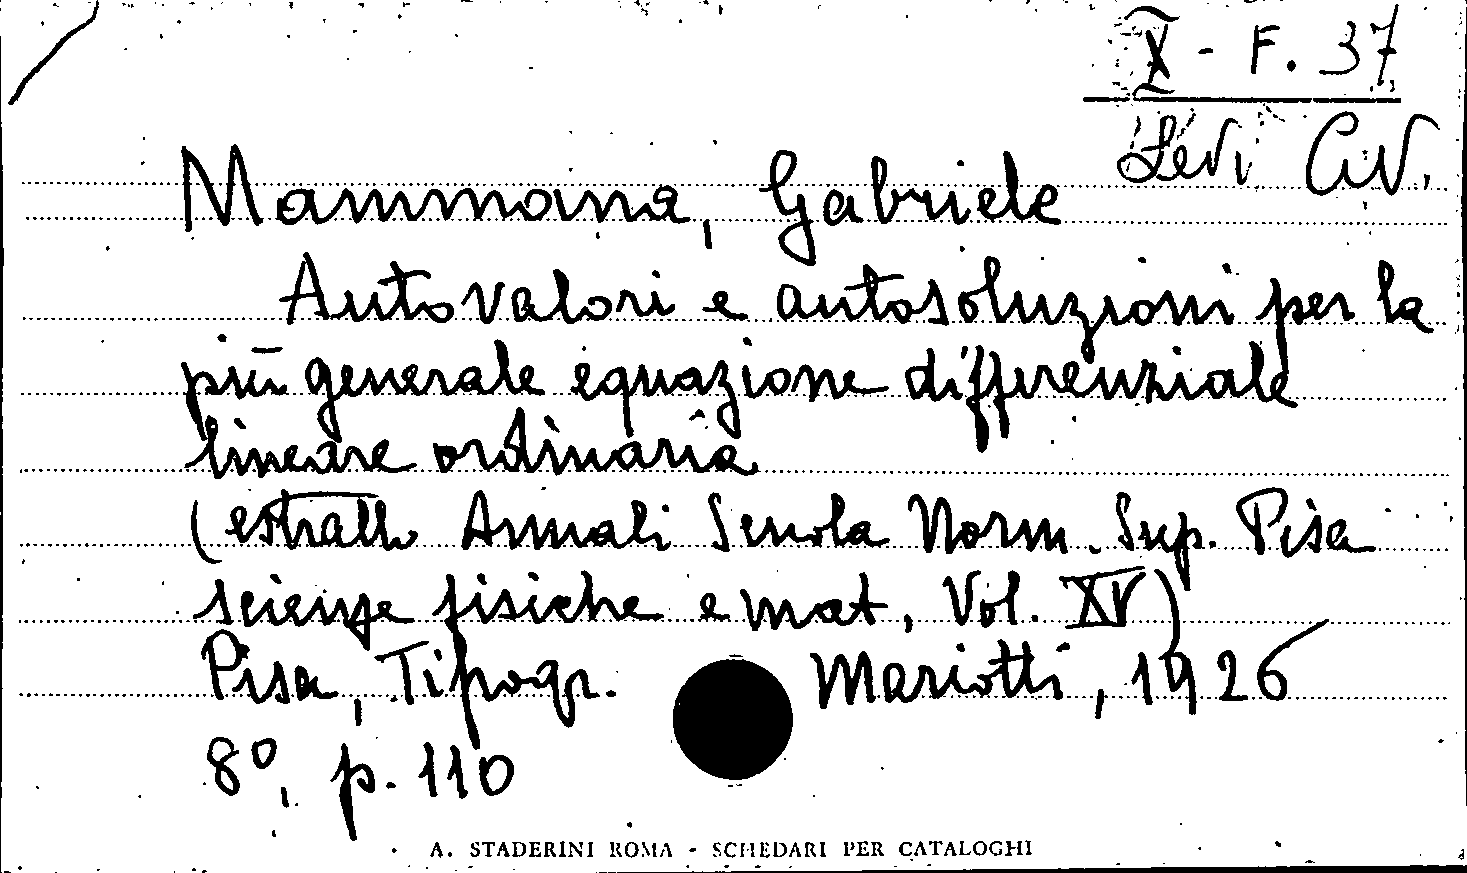 X - F. 37
Levi Civ.
Mammana, Gabriele
Autovalori e autosoluzioni per la
più generale equazione differenziale
lineare ordinaria
(estratto Annali Scuola Norm. Sup. Pisa
scienze fisiche e mat, Vol. XV)
Pisa, Tipogr. Mariotti, 1926
8°, p. 110
A. STADERINI ROMA - SCHEDARI PER CATALOGHI